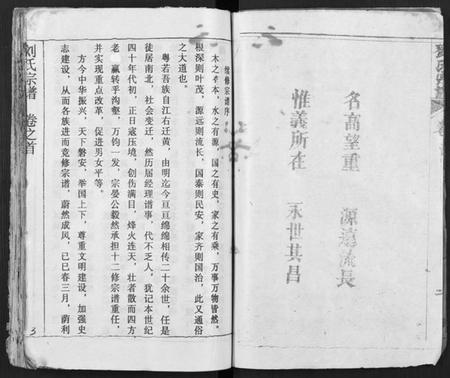 名高望重 源遠流長
惟義所在 永世其昌
二
续修宗谱序
木之有本，水之有源，国之有史，家之有乘，万事万物皆然。
根深则叶茂，源远则流长，国泰则民安，家齐则国治，此又通俗
之大道也。
粤若吾族自江右迁黄，由明迄今亘亘绵绵相传二十余世，任是
徒居南北，社会变迁，然历届经理谱事，代不乏人，犹记本世纪
四十年代初，正日寇压境，创伤满目，烽火连天，壮者散而四方，
老羸转乎沟壑，万钧一发，宗晏公毅然承担十二修宗谱重任，
并实现重点改革，促进男女平等。
方今中华振兴，天下磐安，举国上下，尊重文明建设，加强史
志建设，从而各族进而竞修宗谱，蔚然成风，己巳春三月，荫利
刘氏宗谱 卷之首
3